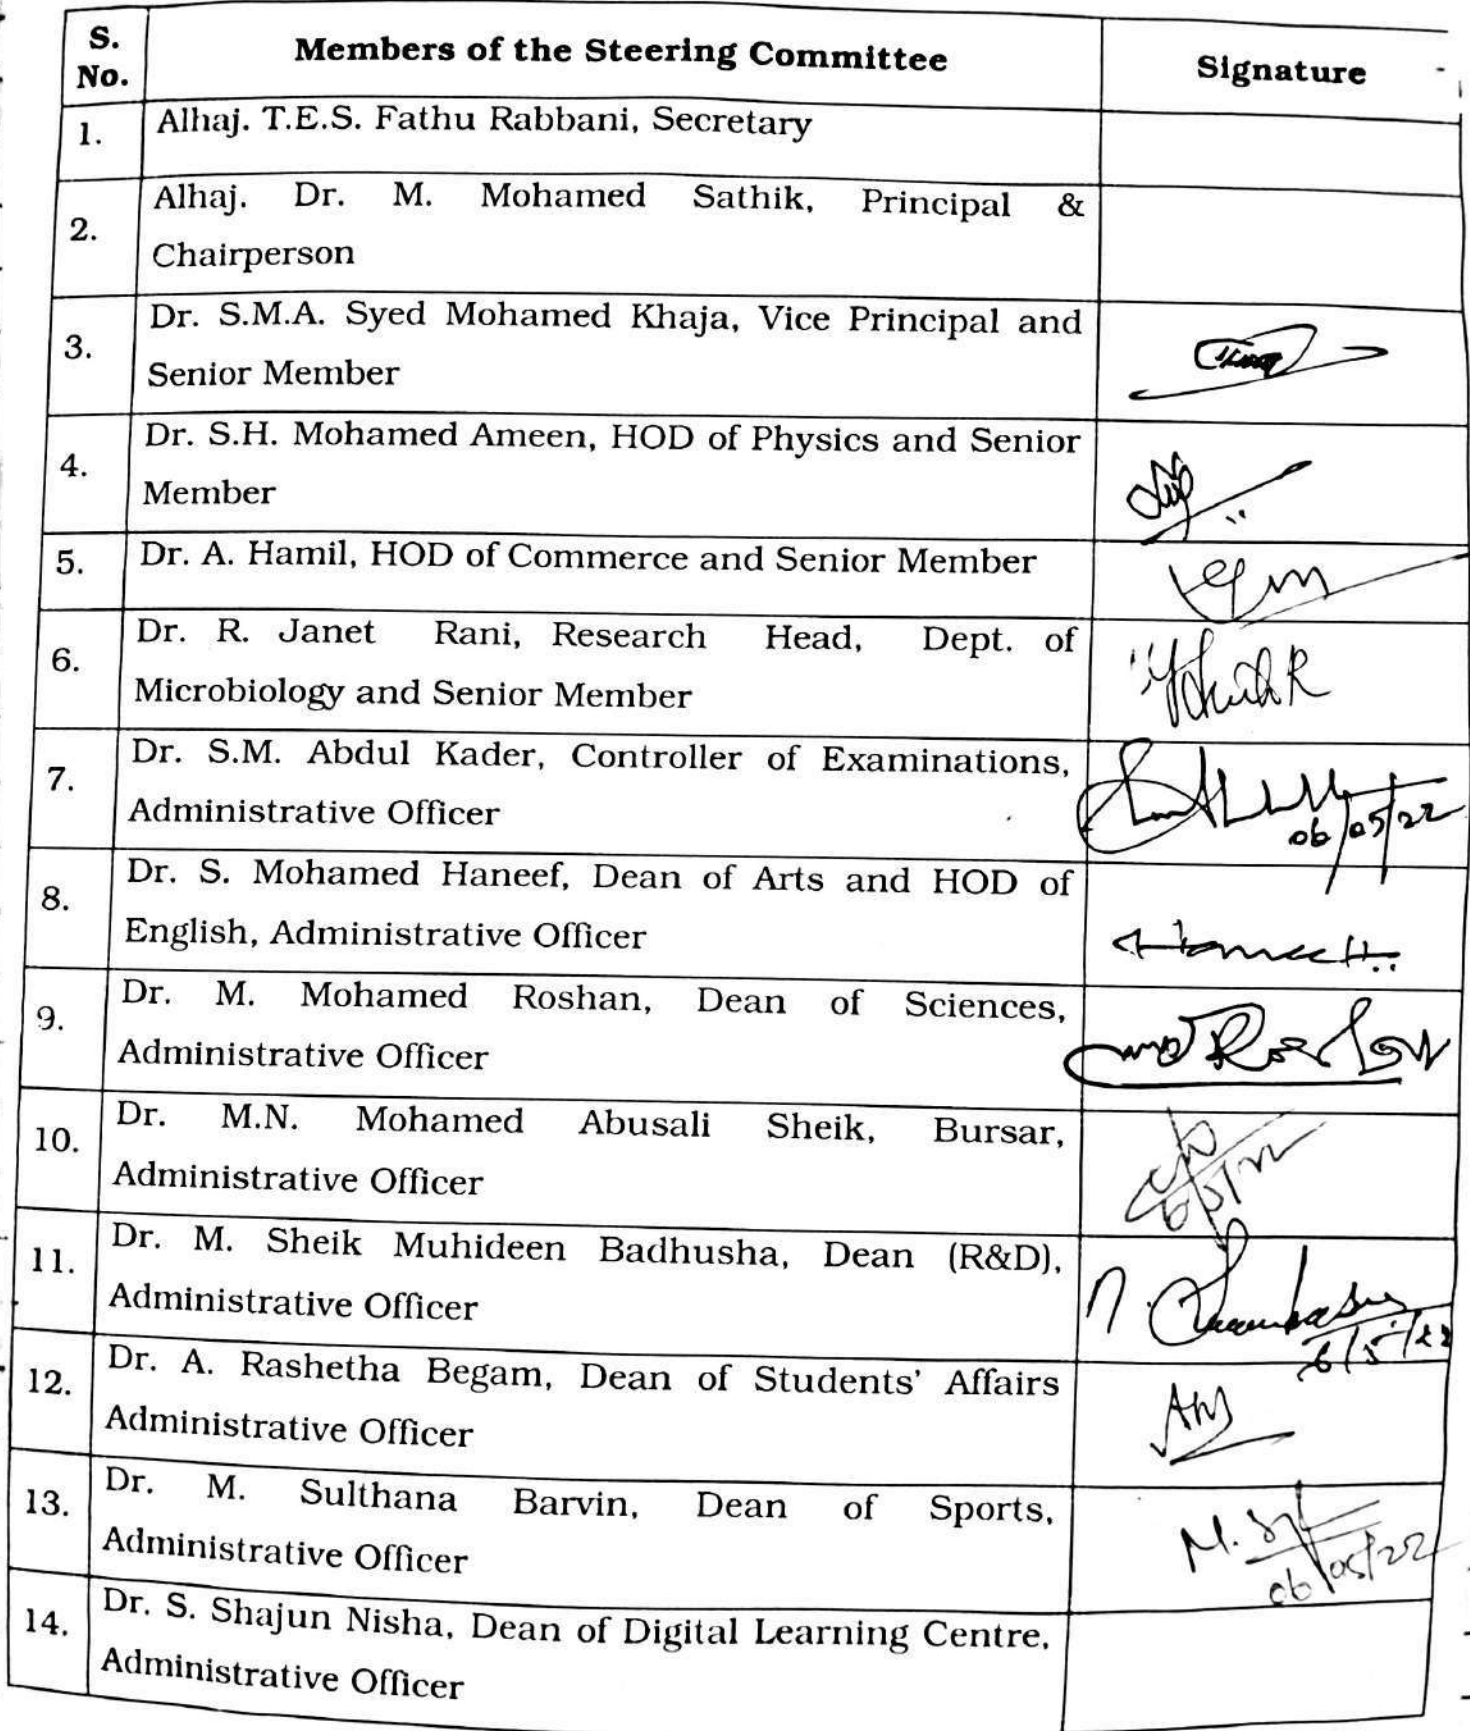 S. No. Members of the Steering Committee Signature
1. Alhaj. T.E.S. Fathu Rabbani, Secretary
2. Alhaj. Dr. M. Mohamed Sathik, Principal &
Chairperson
3. Dr. S.M.A. Syed Mohamed Khaja, Vice Principal and
Senior Member
4. Dr. S.H. Mohamed Ameen, HOD of Physics and Senior
Member
5. Dr. A. Hamil, HOD of Commerce and Senior Member
6. Dr. R. Janet Rani, Research Head, Dept. of
Microbiology and Senior Member
7. Dr. S.M. Abdul Kader, Controller of Examinations,
Administrative Officer
06/05/22
8. Dr. S. Mohamed Haneef, Dean of Arts and HOD of
English, Administrative Officer
9. Dr. M. Mohamed Roshan, Dean of Sciences,
Administrative Officer
10. Dr. M.N. Mohamed Abusali Sheik, Bursar,
Administrative Officer
11. Dr. M. Sheik Muhideen Badhusha, Dean (R&D),
Administrative Officer
6/5/22
12. Dr. A. Rashetha Begam, Dean of Students' Affairs
Administrative Officer
13. Dr. M. Sulthana Barvin, Dean of Sports,
Administrative Officer
06/05/22
14. Dr. S. Shajun Nisha, Dean of Digital Learning Centre,
Administrative Officer